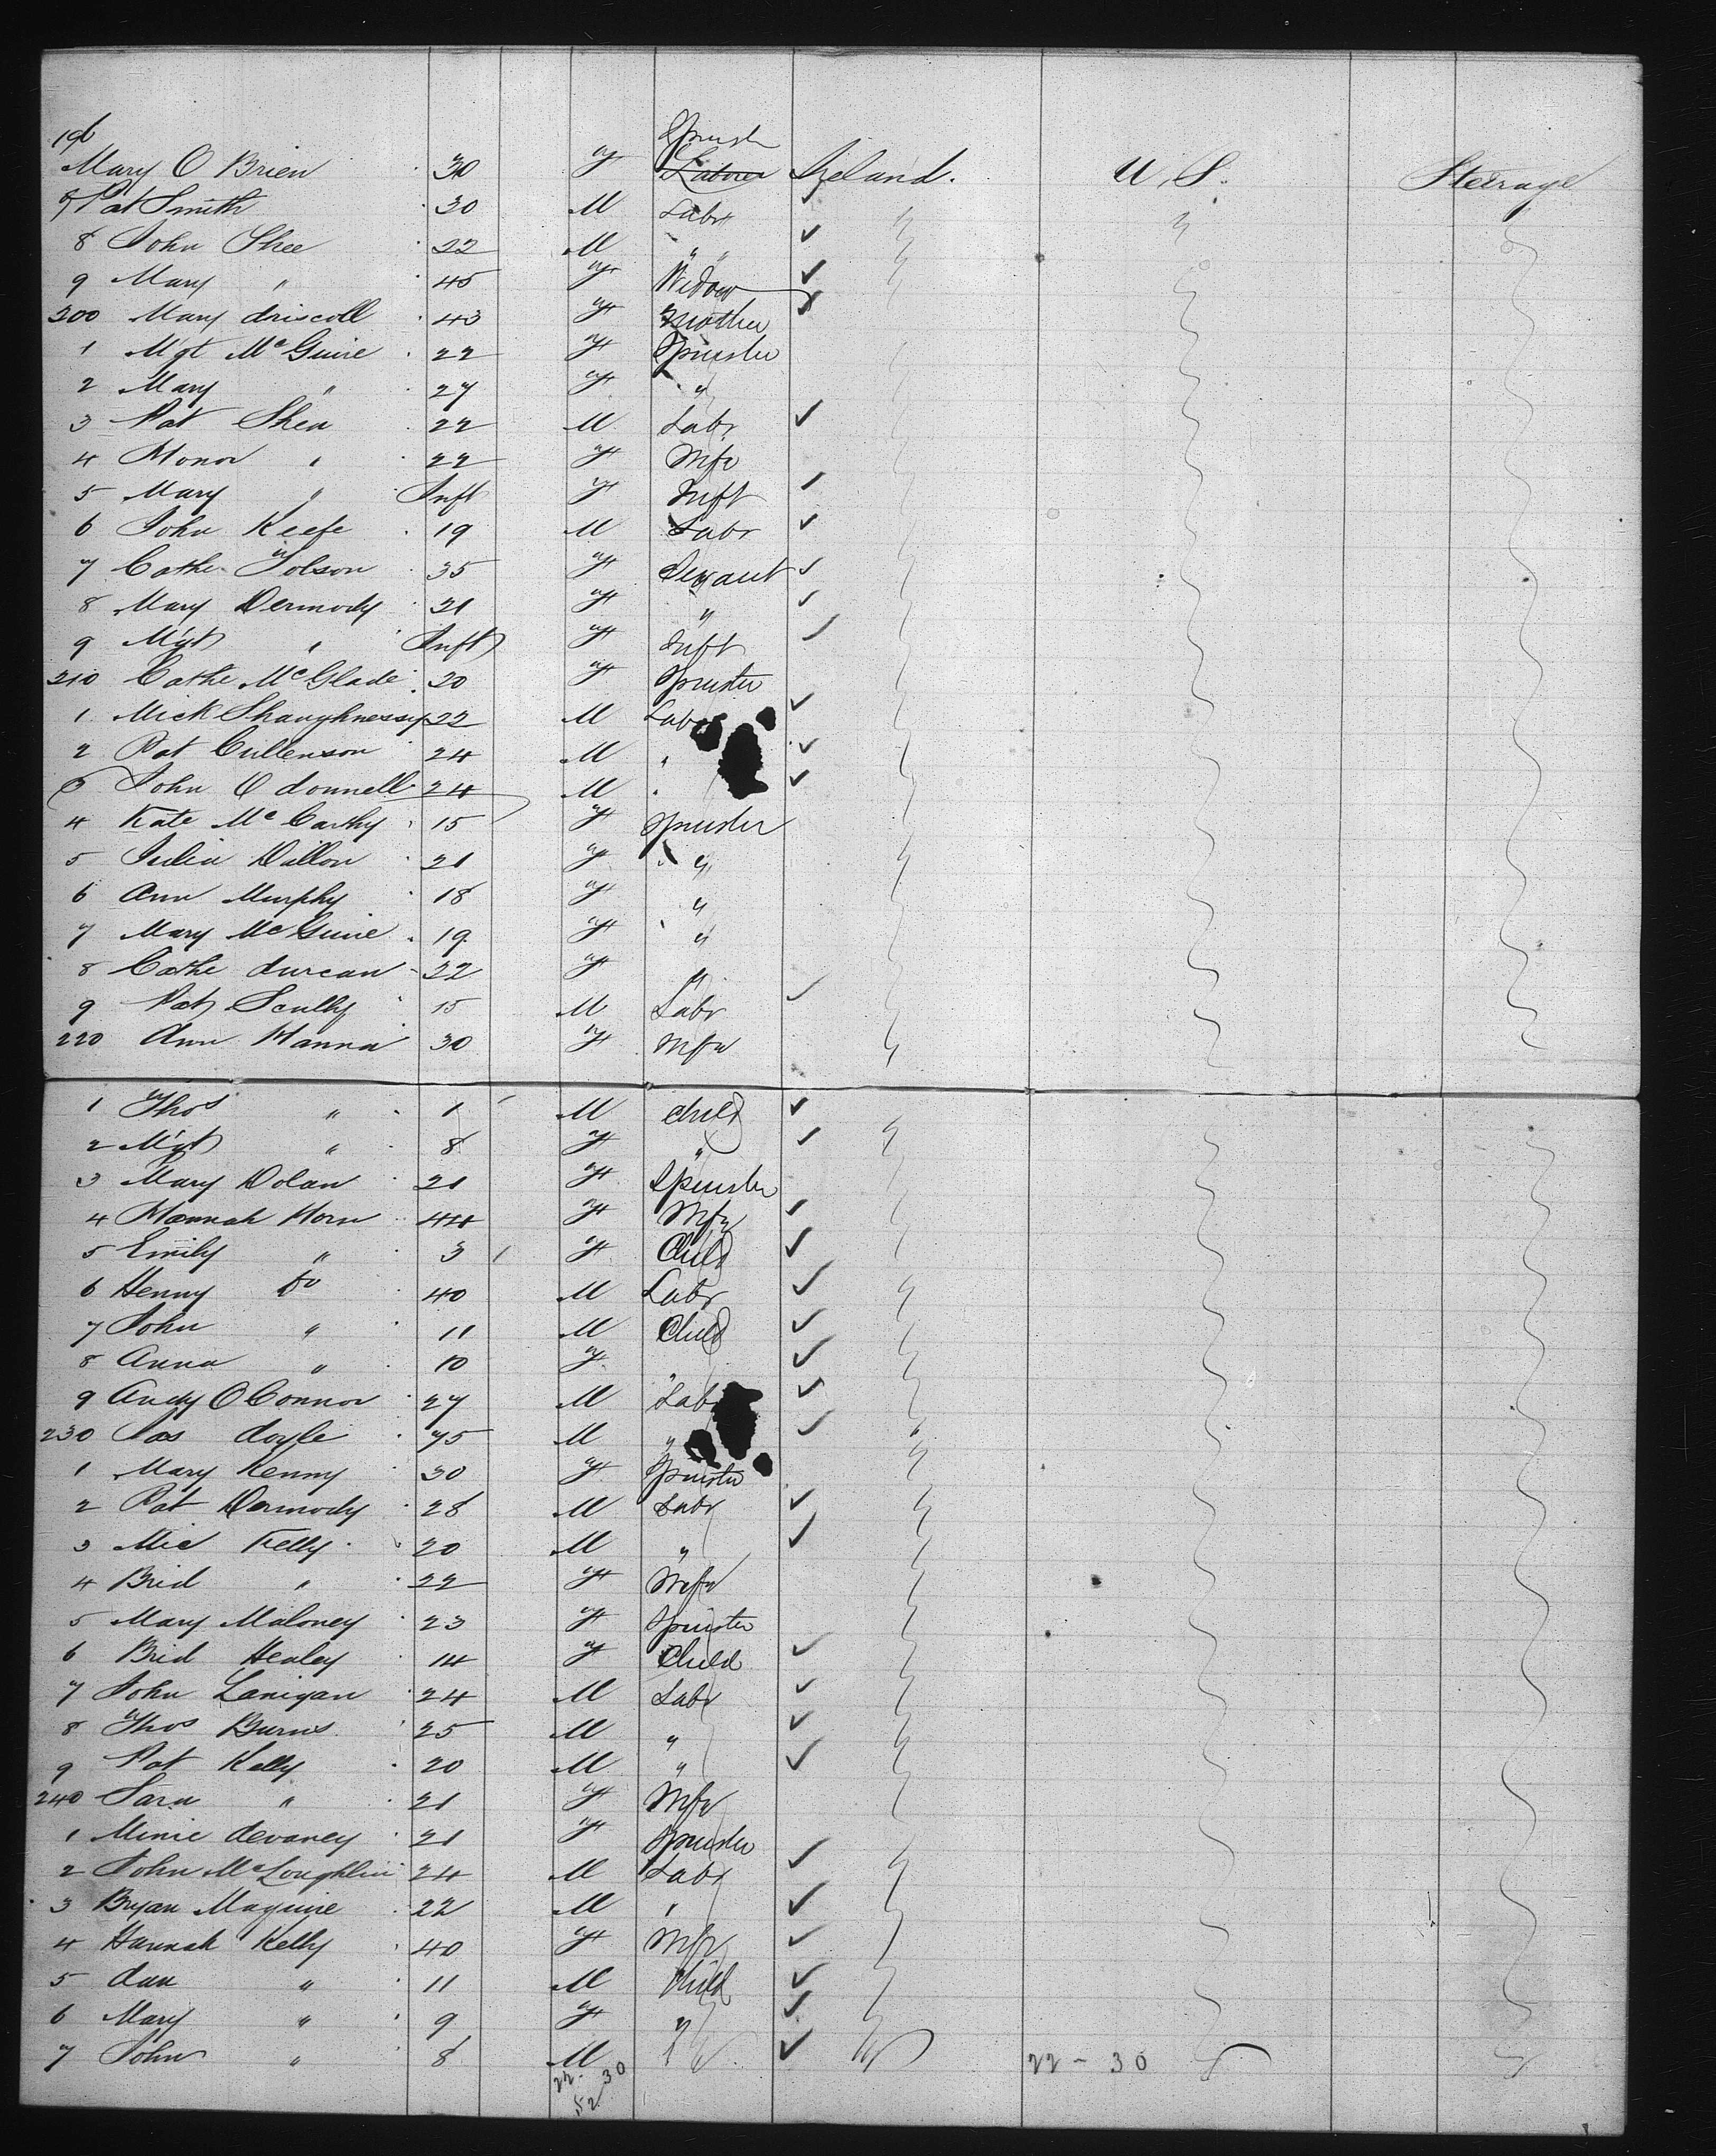 196
Spinst
Mary O Brien 30 F Laborer Ireland. U. S. Steerage
7 Pat Smith 30 M Labr " "
8 John Shee 22 M " "
9 Mary " 45 F Widow
200 Mary driscoll 43 F Mother
1 Mgt McGuire 22 F Spinster
2 Mary " 27 F "
3 Pat Shea 22 M Labr
4 Honor " 22 F Wife
5 Mary " Inft F Inft
6 John Keefe 19 M Labr
7 Cathe Tobson 35 F Servant
8 Mary Dermody 21 F "
9 Mgt " Inft F Inft
210 Cathe McGlade 20 F Spinster
1 Mick Shaughnessy 22 M Labr
2 Pat Cullenson 24 M "
3 John O donnell 24 M "
4 Kate McCarthy 15 F Spinster
5 Julia Dillon 21 F "
6 Ann Murphy 18 F "
7 Mary McGuire 19 F "
8 Cathe durcan 22 F "
9 Pat Scully 15 M Labr
220 Ann Hanna 30 F Wife
1 Thos " 1 M child
2 Mgt " 8 F "
3 Mary Dolan 21 F Spinster
4 Hannah Horn 44 F Wife
5 Emily " 3 F Child
6 Henny Do 40 M Labr
7 John " 11 M Child
8 Anna " 10 F "
9 Andy O Connor 27 M Labr
230 Jas doyle 75 M "
1 Mary Kenny 30 F Spinster
2 Pat Dermody 28 M Labr
3 Mic Kelly 20 M "
4 Brid " 22 F Wife
5 Mary Maloney 23 F Spinster
6 Brid Healey 14 F Child
7 John Lanigan 24 M Labr
8 Thos Burns 25 M "
9 Pat Kelly 20 M "
240 Sara " 21 F Wife
1 Minie devaney 21 F Spinster
2 John McLoughlin 24 M Labr
3 Bryan Maguire 22 M "
4 Hannah Kelly 40 F Wife
5 dan " 11 M Child
6 Mary " 9 F "
7 John " 8 M "
22 - 30
22. 30
52